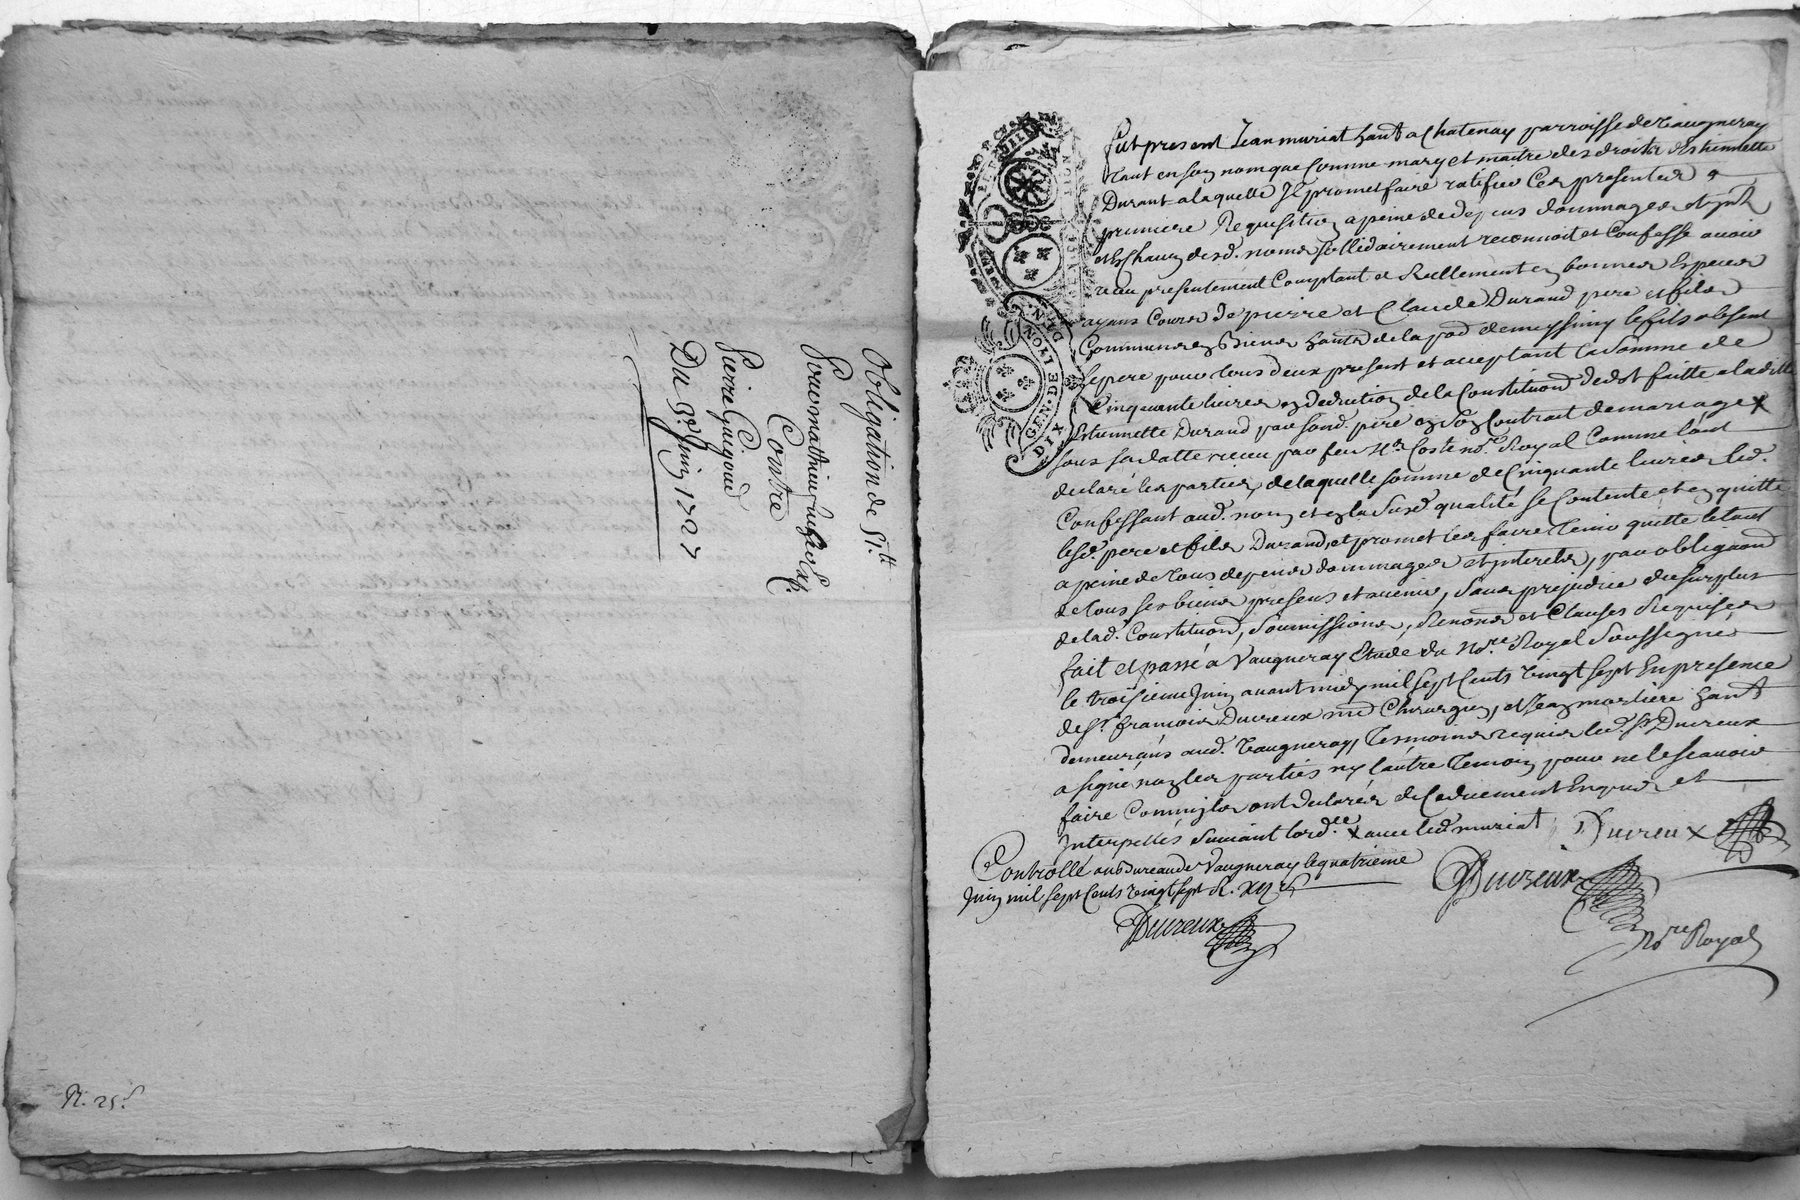 Obligation de 51.lt
Pour mathieu
Contre
Pierre Guigoud
Du 3.e Juin 1727
R. 25.s
GEN. DE LYON
DIX DEN.
fut present Jean muriat habt a Chatenay parroisse de Vaugneray
tant en son nom que comme mary et maitre des droits d'Estiennette
Durant a laquelle Il promet faire ratifier Ces presentes a
premiere Requisition a peine de depens dommages et jnts
et esd. noms sollidairement reconnoit et Confesse avoir
receu presentement Comptant et Reellement en bonnes Especes
ayans Cours de pierre et Claude Durand pere et fils
Communs en Biens habts de la pad de messimy le fils absent
le pere pour tous deux present et acceptant la somme de
Cinquante livres en deduction de la Constituon de dot faitte a laditte
Estiennette Durand par sond. pere en son Contrait de mariage x
sous sa datte receu par feu Me Coste nore Royal Comme l'ont
declaré les parties, de laquelle somme de Cinquante livres led.
Confessant aud. nom et en la susd qualité se Contente et en quitte
lesd. pere et fils Durand, et promet les faire tenir quitte
a peine de tous depens dommages et interets, par obligaon
de tous ses biens presens et avenir, sans prejudice du surplus
de lad. Constituon, soumissions, Renons et Clauses Requises
fait et passé à Vaugneray Etude du Nore Royal Soussigné
le troisieme Juin avant midy mil sept Cents vingt sept En presence
de sr. françois Ducreux md Chirurgien, et Jean mortiere habt
demeurans aud. Vaugneray, tesmoins requis led. sr Ducreux
a signé non les parties ny l'autre temoin pour ne le scavoir
faire Comm'ils ont declarés de Ce duement Enquis et
Interpellés suivant l'ord.ce x avec led muriat Ducreux
Controllé au Bureau de Vaugneray le quatrieme
Juin mil sept Cents vingt sept R. xij s
Ducreux
Ducreux
Nore Royal